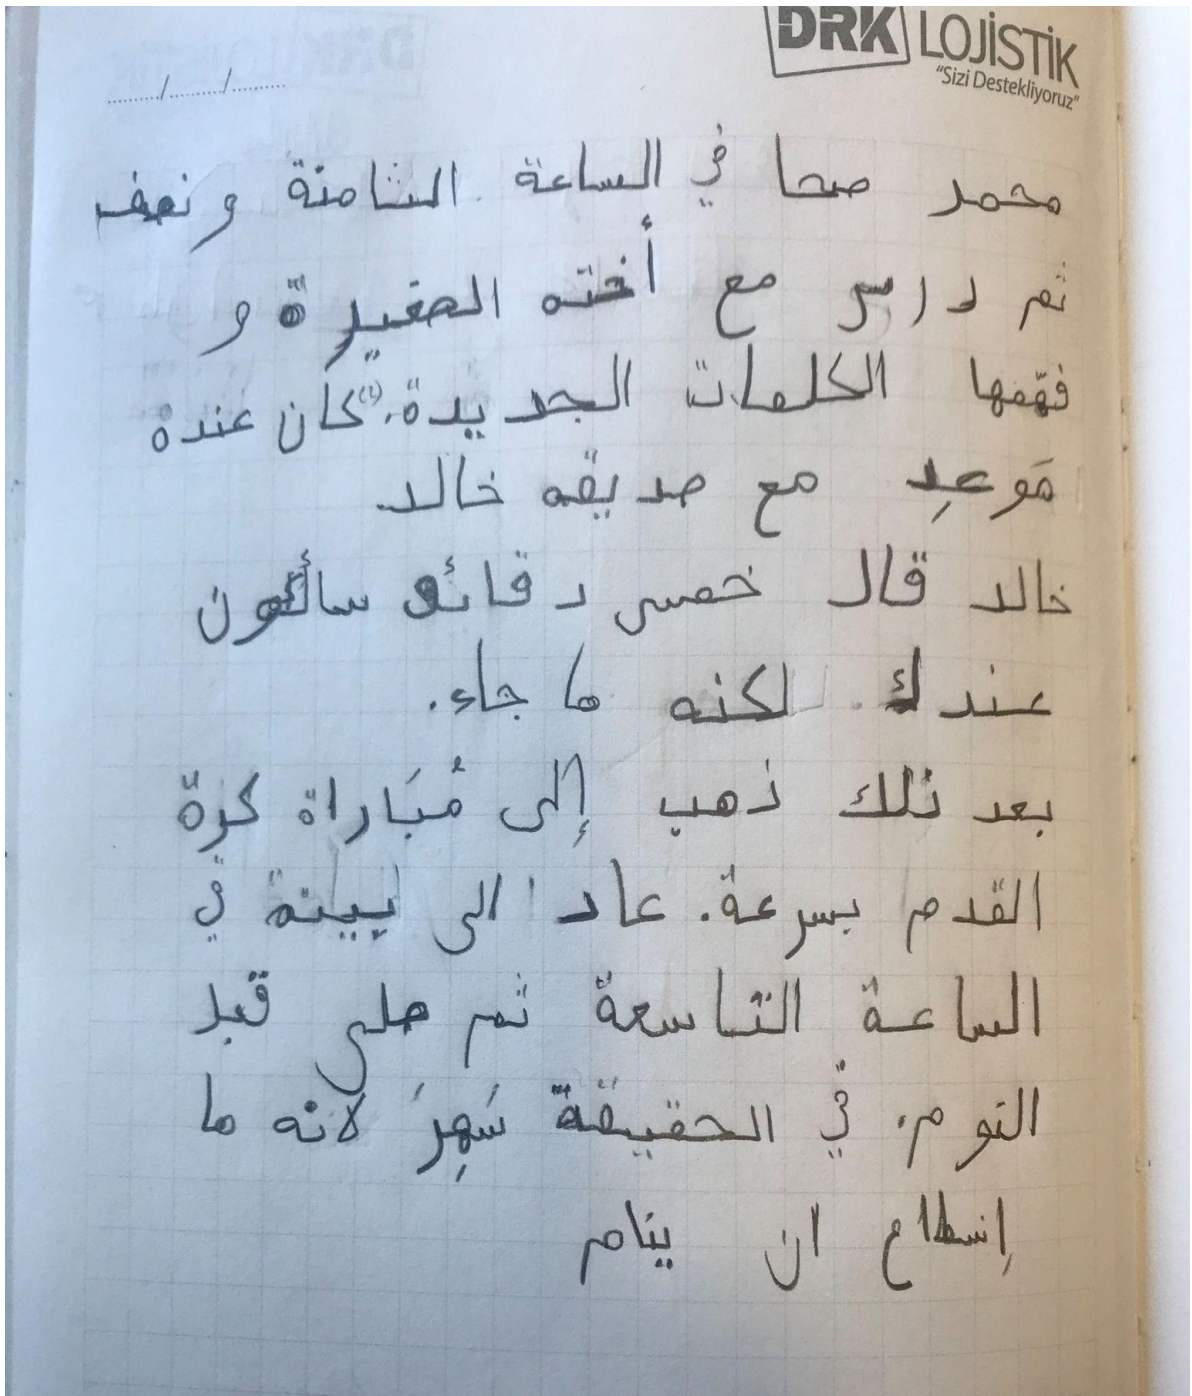 DRK LOJİSTİK
"Sizi Destekliyoruz"
....../....../......
محمد صحا في الساعة الثامنة و نصف
ثم دارس مع أخته الصغيرة و
فهّمها الكلمات الجديدة. كان عنده
مَوعِد مع صديقه خالد
خالد قال خمس دقائق سأكون
عندك. لكنه ما جاء.
بعد ذلك ذهب إلى مُبَاراة كرة
القدم بسرعة. عاد الى بيته في
الساعة التاسعة ثم صلى قبل
النوم. في الحقيقة سَهِرَ لانه ما
اِسطاع ان ينام